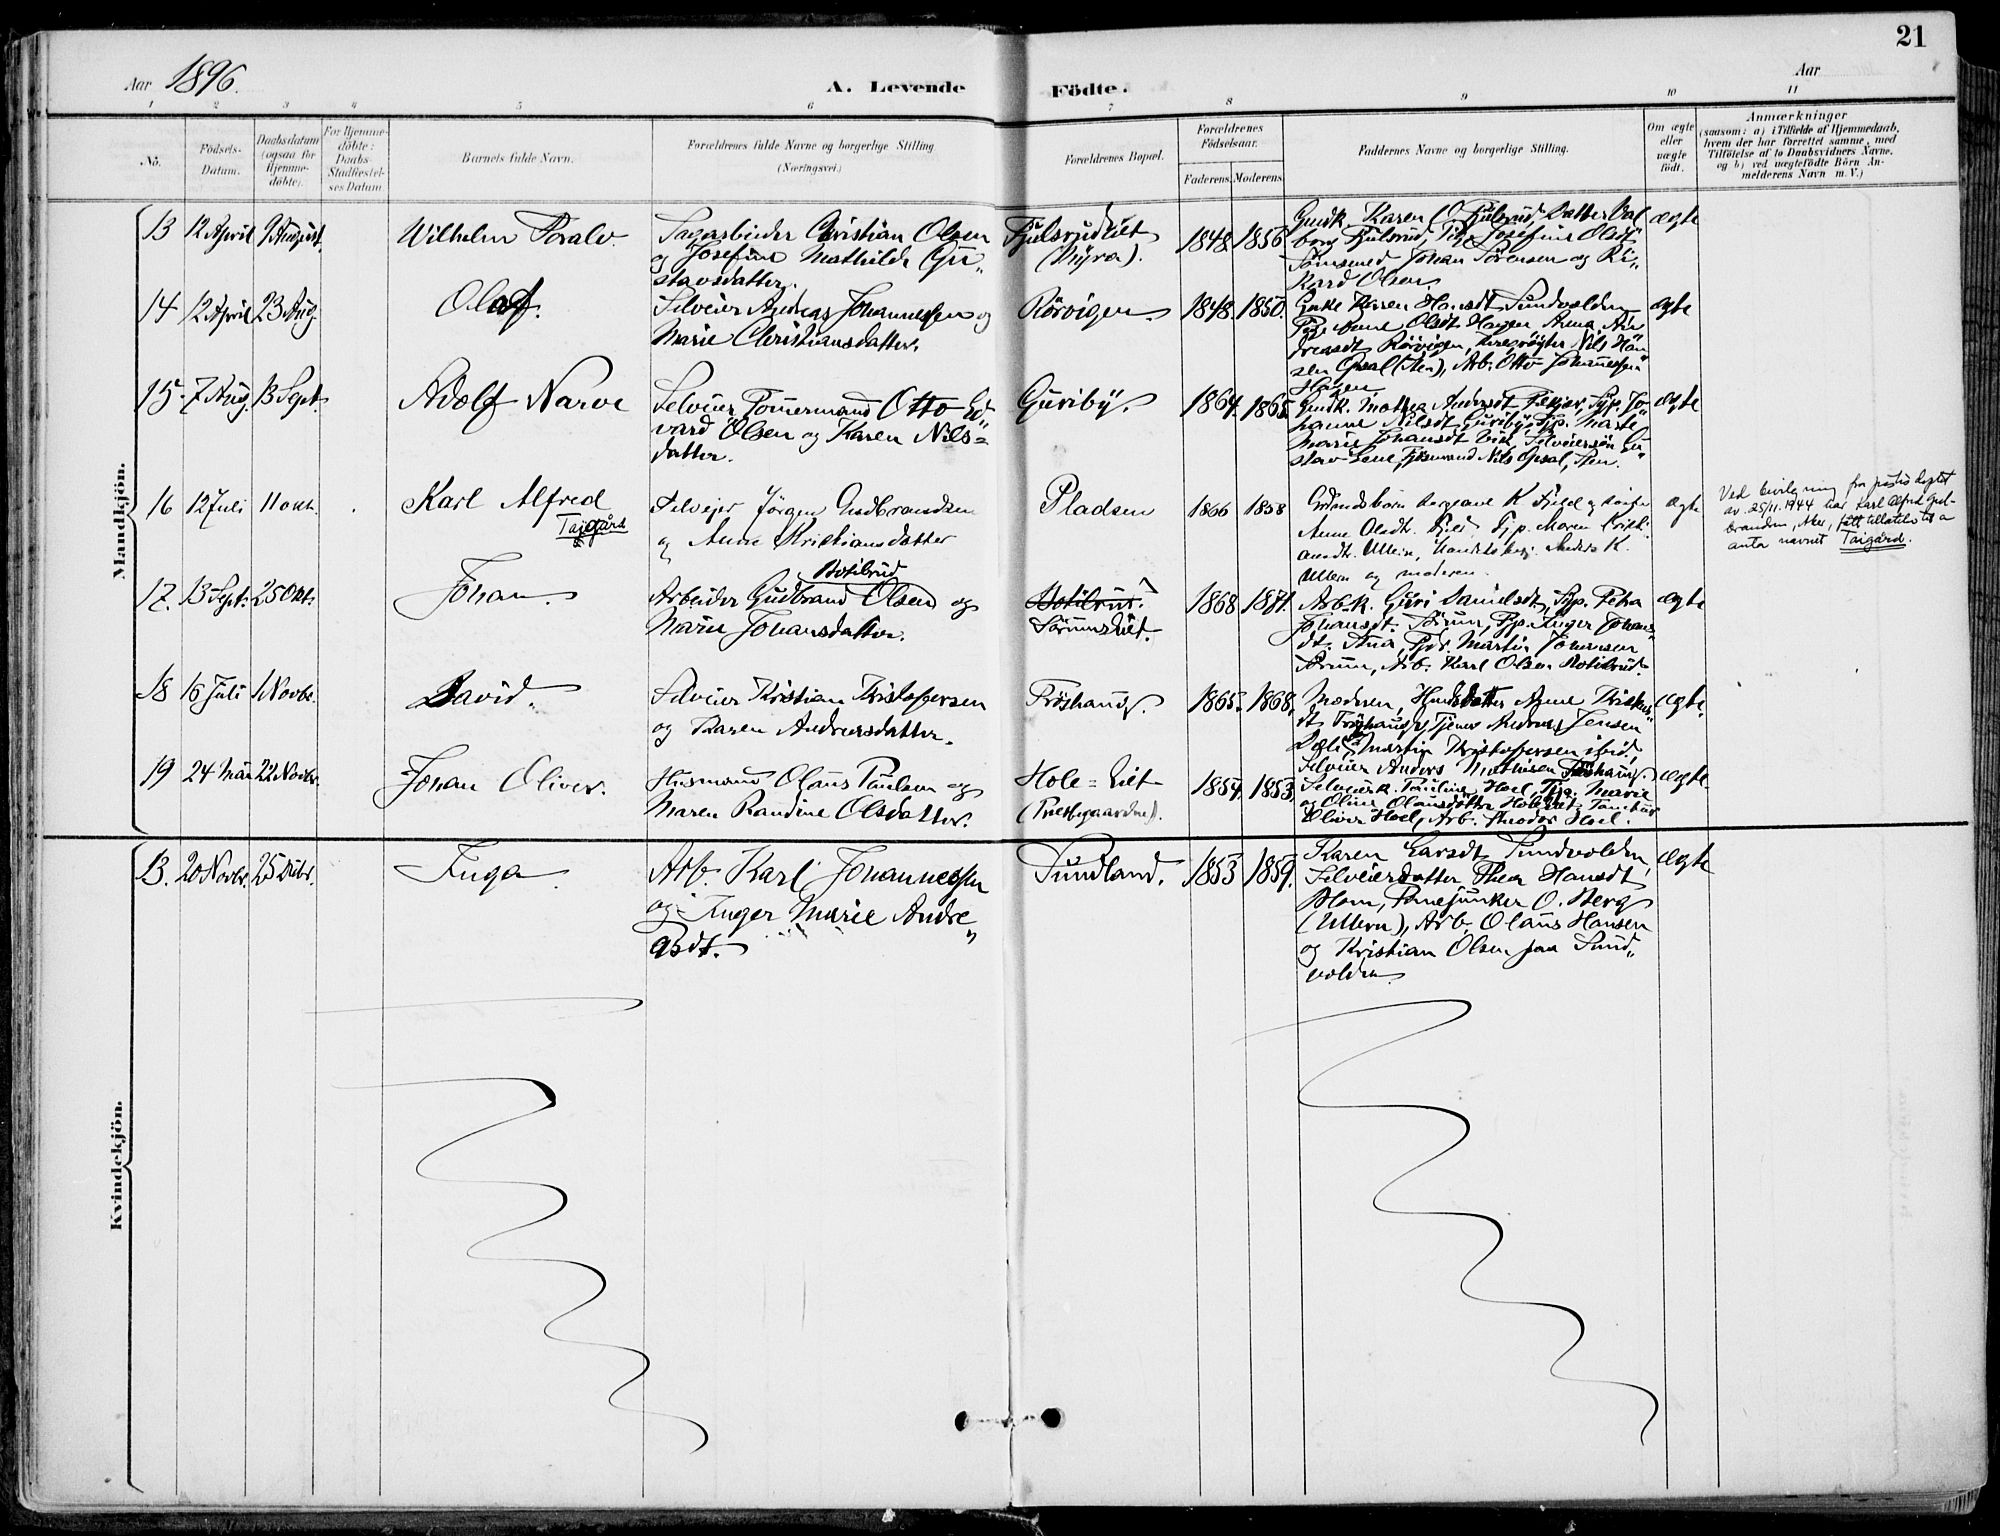 21
Aar 1896.
A. Levende Födte.
Aar
1 2 3 4 5 6 7 8 9 10 11
No.
Födsels-Datum.
Daabsdatum (ogsaa for Hjemmedöbte).
For Hjemmedöbte: Daabs-Stadfæstelses Datum
Barnets fulde Navn.
Forældrenes fulde Navne og borgerlige Stilling (Næringsvei.)
Forældrenes Bopæl.
Forældrenes Födselsaar.
Faderens. Moderens.
Faddernes Navne og borgerlige Stilling.
Om ægte eller uægte födt.
Anmærkninger
(saasom: a) i Tilfælde af Hjemmedaab,
hvem der har forrettet samme, med
Tilföielse af to Daabsvidners Navne.
og b) ved uægtefödte Börn An-
melderens Navn m. V.)
Mandkjön.
13 12 April 9 August. Wilhelm
Christian Olsen
og Josefine Mathilde Gu„
stavsdatter.
(Myra).
1848. 1856.
Gmdk Karen
Josefine Olsdt
Johan Sörensen og Ri„
kard Olsen
ægte
14 12 April 23 Aug. Olaf.
Selveier Andreas Johannessen og
Marie Christiansdatter.
Rörvigen. 1848. 1850.
Karen Hansdt Sundvolden
Olsdt Hagen Anna An
dreasdt Rörvigen, Nils Han
sen Opsal (Aen), Arb. Otto Johannessen
Hagen
ægte
15. 7 Aug. 13 Sept. Adolf Narve
Selveier Tömmermand Otto Ed„
vard Olsen og Karen Nils=
datter.
Guriby. 1864. 1865.
Gmdk. Mathea Andersdt Fekjær, Pige Jo„
hanne Nilsdt Guriby, Pige Marte
Marie Johansdt Vik, Selveiersön Gu„
stav Lene, Nils Opsal, Aen.
ægte
16 12 Juli 11 okt. Karl Alfred
Taigård
Selvejer Jörgen Gudbrandsen
og Anne Kristiansdatter
Pladsen 1866 1858
Anne Olsdt. Maren Kristi-
ansdt. Ullern, Anders K.
Ullern og moderen.
ægte
Ved bevilgning fra justisdeptet
av 25/11.1944 har Karl Alfred Gud-
brandsen, Aker, fått tillatelse til å
anta navnet Taigård.
17. 13 Sept. 25 Okt. Johan.
Botilrud
Arbeider Gudbrand Olsen og
Marie Johansdatter.
Botilrud.
1868 1871.
Arb.k. Guri Danielsdt, Pige Petra
Johansdt. Sörum, Pige Inger Johans„
dt. Martin Johansen
Sörum, Arb. Karl Olsen Botilrud.
ægte
18 16 Juli 1 Novbr. David.
Selveier Kristian Kristoffersen
og Karen Andreasdatter.
Fröshaug. 1865. 1868.
Moderen, Anne
dt Fröshaug, Tjener Andreas Jensen
Martin Kristoffersen ibid,
Selveier Anders Mathisen Fröshaug.
ægte.
19 24 Mai 22 Novbr. Johan Oliver.
Husmand Olaus Paulsen og
Maren Randine Olsdatter.
Hole=Eiet
(Prestegaarden).
1854. 1853.
Selveierk. Pauline Hoel, Pige Marie
og Oline Olausdöttre
Oliver Hoel, Arb. Theodor Hoel.
ægte
Kvindekjön.
13. 20 Novbr. 25 Decbr. Inga
Arb. Karl Johannessen
og Inger Marie Andre„
asdt.
Sundland. 1853 1859.
Karen Larsdt Sundvolden,
Selveierdatter Thea Hansdt
Blom, O. Berg
(Ullern), Arb. Olaus Hansen
og Kristian Olsen paa Sund„
volden.
ægte